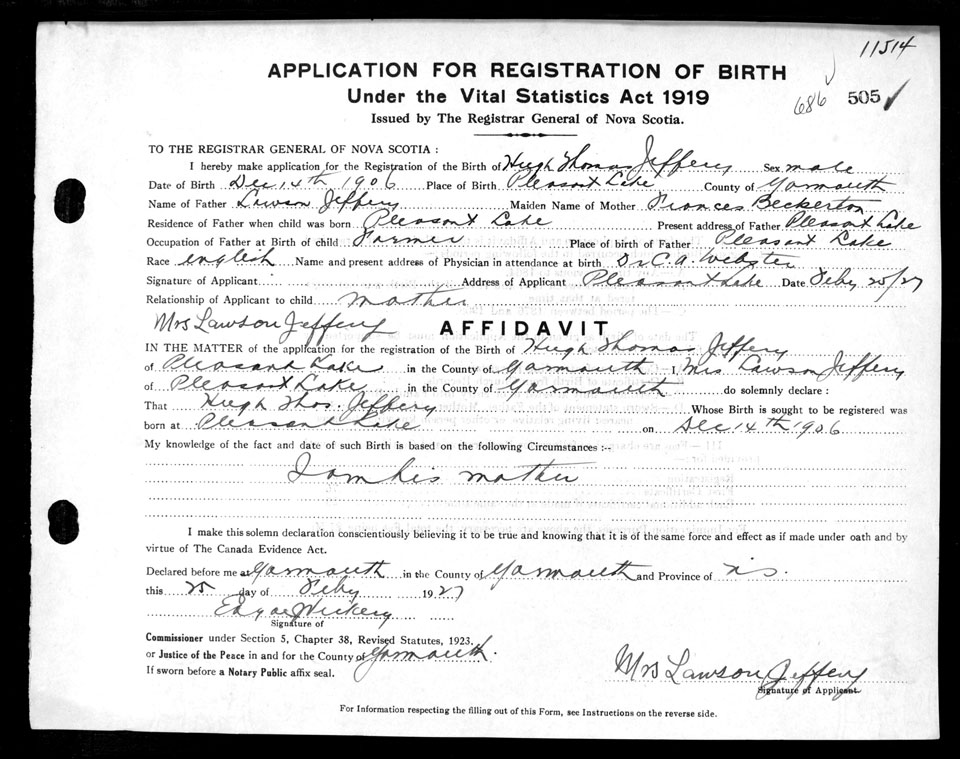 11514
APPLICATION FOR REGISTRATION OF BIRTH
Under the Vital Statistics Act 1919
686 505
Issued by The Registrar General of Nova Scotia.
TO THE REGISTRAR GENERAL OF NOVA SCOTIA :
I hereby make application for the Registration of the Birth of Hugh Thomas Jeffery Sex male
Date of Birth Dec 14th 1906 Place of Birth Pleasant Lake County of Yarmouth
Name of Father Lawson Jeffery Maiden Name of Mother Frances Beckerton
Residence of Father when child was born Pleasant Lake Present address of Father Pleasant Lake
Occupation of Father at Birth of child Farmer Place of birth of Father Pleasant Lake
Race english Name and present address of Physician in attendance at birth Dr C.A. Webster
Signature of Applicant Address of Applicant Pleasant Lake Date Feby 25/27
Relationship of Applicant to child mother
Mrs Lawson Jeffery AFFIDAVIT
IN THE MATTER of the application for the registration of the Birth of Hugh Thomas Jeffery
of Pleasant Lake in the County of Yarmouth I, Mrs. Lawson Jeffery
of Pleasant Lake in the County of Yarmouth do solemnly declare :
That Hugh Thos. Jeffery Whose Birth is sought to be registered was
born at Pleasant Lake on Dec 14th 1906
My knowledge of the fact and date of such Birth is based on the following Circumstances :--
I am his mother
I make this solemn declaration conscientiously believing it to be true and knowing that it is of the same force and effect as if made under oath and by
virtue of The Canada Evidence Act.
Declared before me at Yarmouth in the County of Yarmouth and Province of N.S.
this 25 day of Feby 1927
Edgar
Signature of
Commissioner under Section 5, Chapter 38, Revised Statutes, 1923.
or Justice of the Peace in and for the County of Yarmouth.
If sworn before a Notary Public affix seal.
Mrs Lawson Jeffery
Signature of Applicant.
For Information respecting the filling out of this Form, see Instructions on the reverse side.